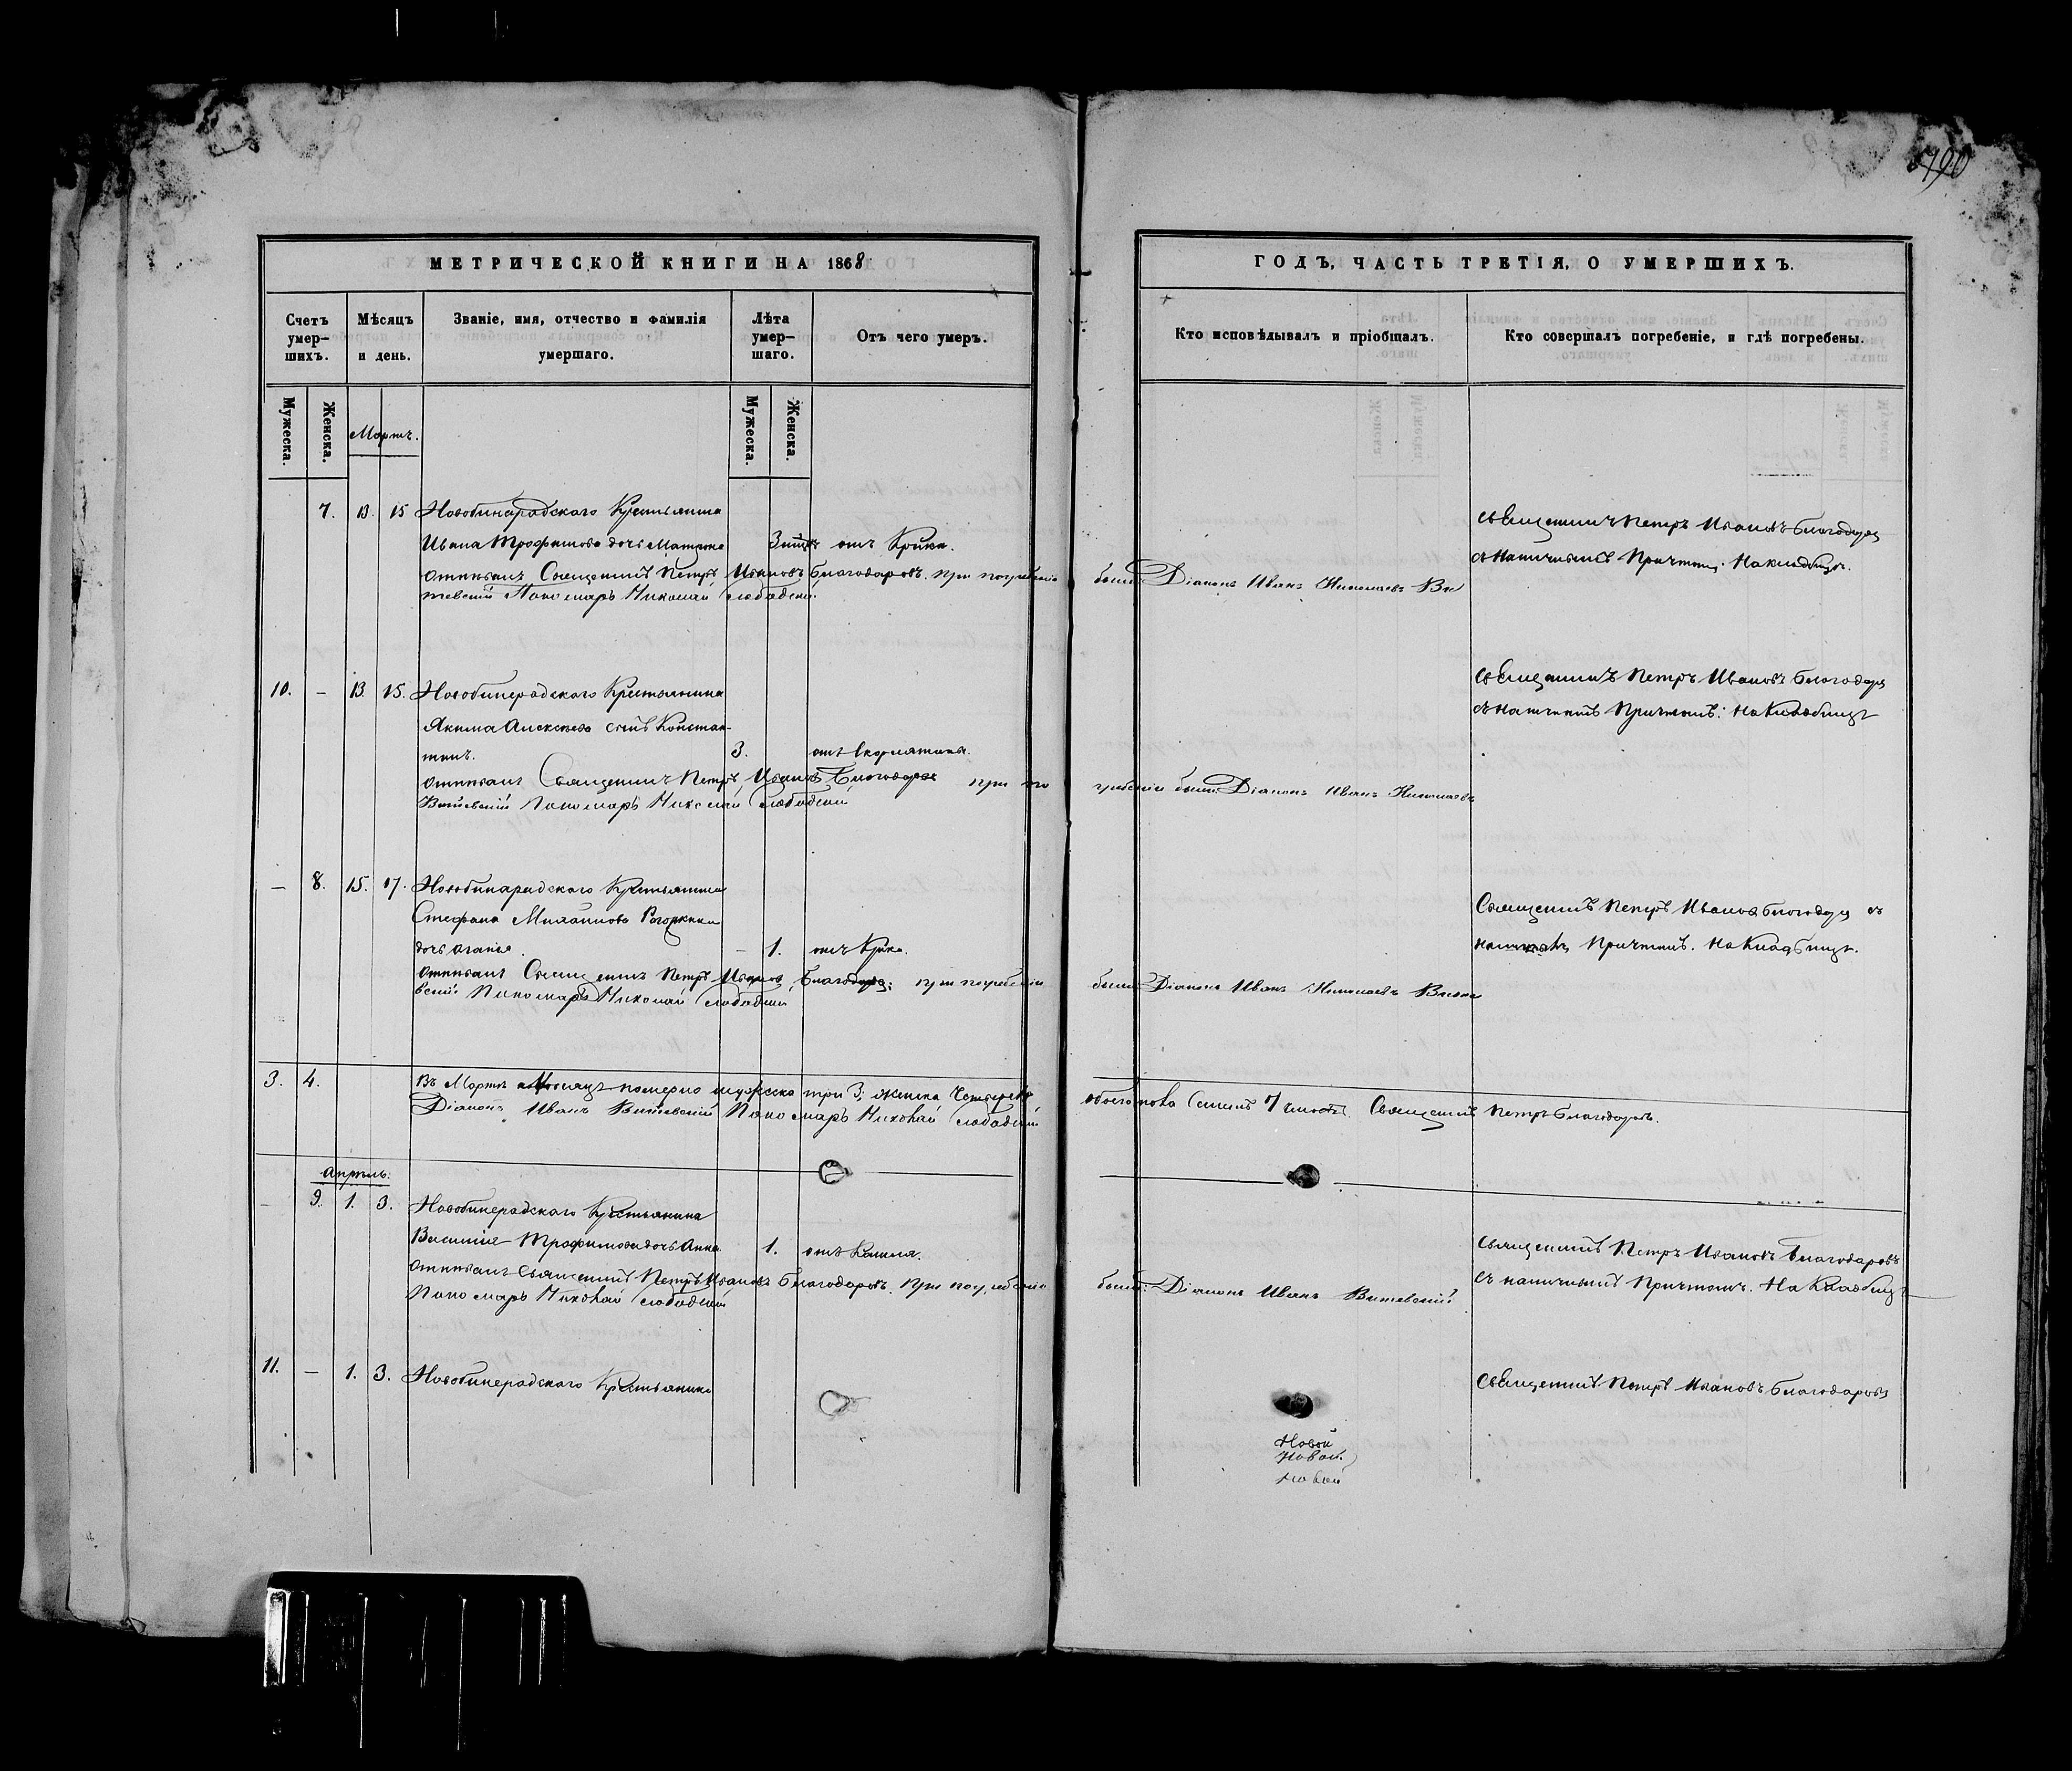 790
МЕТРИЧЕСКОЙ КНИГИ НА 1868
ГОДЪ, ЧАСТЬ ТРЕТІЯ, О УМЕРШИХЪ.
Счетъ умер-шихъ.
Мѣсяцъ и день.
Званіе, имя, отчество и фамилія умершаго.
Лѣта умер-шаго.
Отъ чего умеръ.
Кто исповѣдывалъ и пріобщалъ.
Кто совершалъ погребеніе, и гдѣ погребены.
Мужеска.
Женска.
Мартъ.
Мужеска.
Женска.
7. 13. 15 Новобинарадскаго Крестьянина
Ивана Трофимова дочь Матрона отъ Крика.
отпѣвалъ Священникъ Петръ Ивановъ Благодаровъ. при погребеніи
были: Діаконъ Иванъ Николаевъ Ви
тевскій Пономарь Николай Слободскій.
Священникъ Петръ Ивановъ Благодаров
съ наличнымъ Причтомъ. На кладбищѣ.
10. – 13 15. Новобинерадскаго Крестьянина
Якима Алексѣева сынъ Констан-
тинъ. 3. отъ
отпѣвалъ Священникъ Петръ Ивановъ Благодаровъ при по
гребеніи были: Діаконъ Иванъ Николаевъ
Витевскій Пономарь Николай Слободской
Священникъ Петръ Ивановъ Благодаров
съ наличнымъ Причтомъ: На Кладбищѣ
– 8. 15. 17. Новобинарадскаго Крестьянина
Стефана
дочь – 1. отъ Крика.
отпѣвалъ Священникъ Петръ Ивановъ Благодаровъ: при погребеніи
были: Діаконъ Иванъ Николаевъ Вите
вскій Пономарь Николай Слободской
Священникъ Петръ Ивановъ Благодаров съ
наличнымъ Причтомъ. На Кладбищѣ.
3. 4. Въ Мартѣ Мѣсяцѣ померло мужеска три 3; женска Четыре
обоего пола Семь 7 Священникъ Петръ Благодаровъ.
Діаконъ Иванъ Витевскій Пономарь Николай Слободскій
Апрѣль.
– 9. 1. 3. Новобинерадскаго Крестьянина
Василія Трофимова дочь Анна. 1. отъ Кашля.
отпѣвалъ Священникъ Петръ Ивановъ Благодаровъ. При погребеніи
были: Діаконъ Иванъ Витевскій
Пономарь Николай Слободской
Священникъ Петръ Ивановъ Благодаровъ
съ наличнымъ Причтомъ. На Кладбищѣ
11. – 1. 3. Новобинерадскаго Крестьянина
Священникъ Петръ Ивановъ Благодаровъ
Новой
Новой
Новой